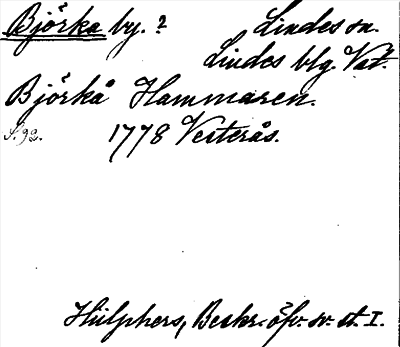 Björka by. ? Lindes sn.
Lindes blg. Vst.
Björkå Hammaren.
S. 92. 1778 Vesterås.
Hülphers, Beskr. öfv. sv. st. I.